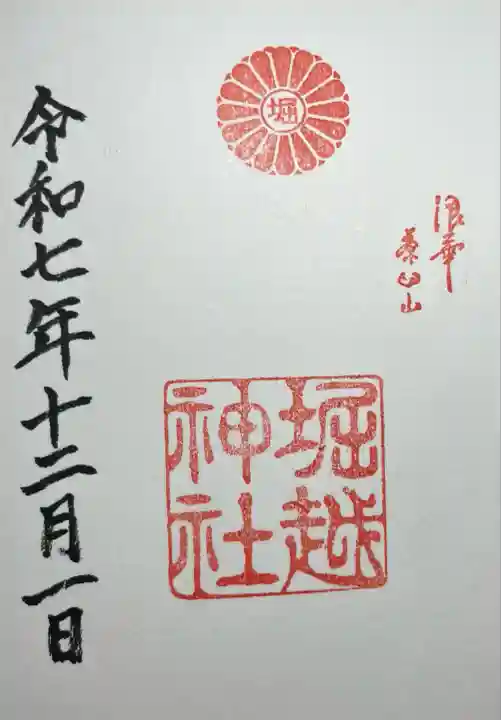 堀
浪華
茶臼山
堀越
神社
令和七年十二月一日